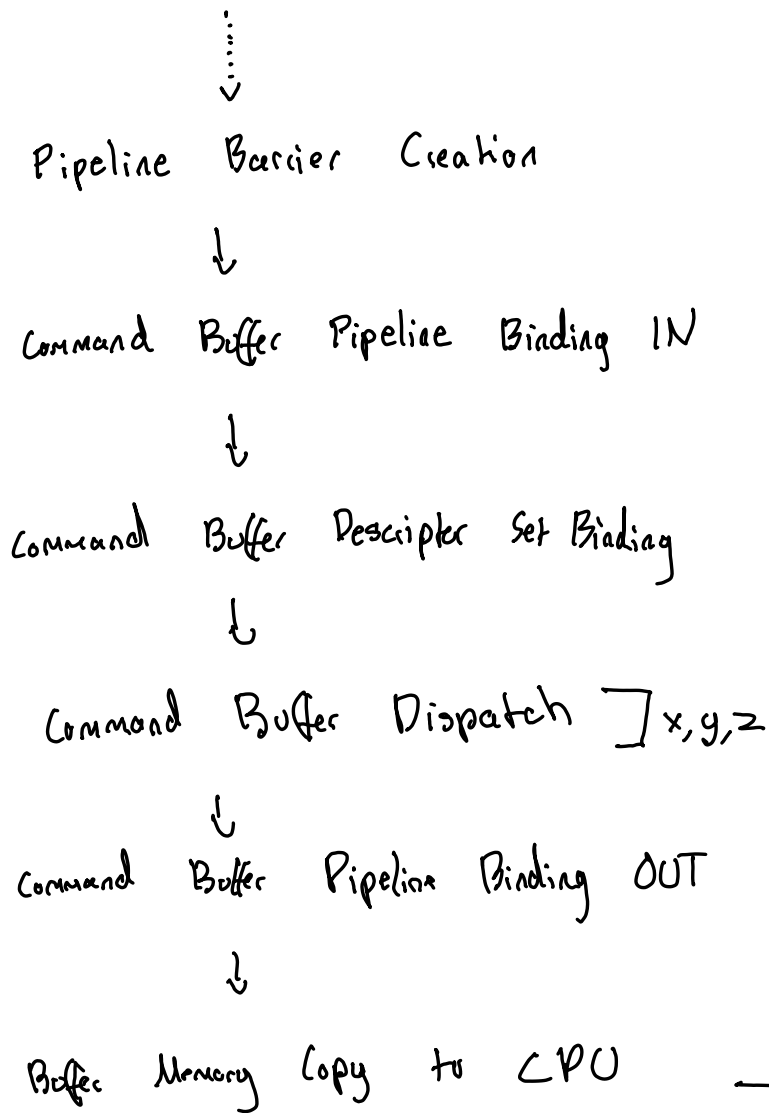 Pipeline Barrier Creation
Command Buffer Pipeline Binding IN
Command Buffer Descriptor Set Binding
Command Buffer Dispatch ] x,y,z
Command Buffer Pipeline Binding OUT
Buffer Memory Copy to CPU